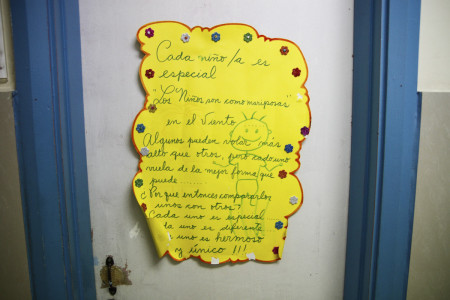 Cada niño/a es
especial
"Los Niños son como mariposas"
en el Viento
Algunos pueden volar más
alto que otros, pero cada uno
vuela de la mejor forma que
puede
¿Por que entonces compararlos
unos con otros?
Cada uno es especial
da uno es diferente
uno es hermoso
y único !!!